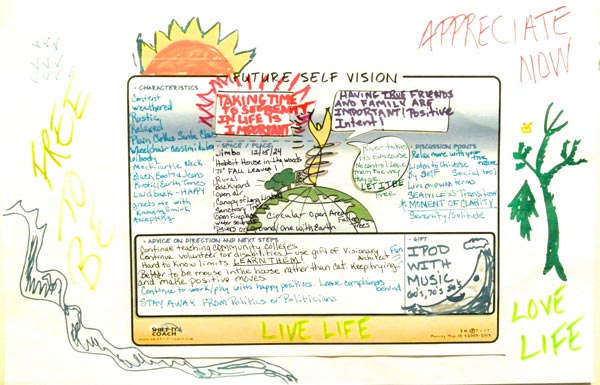 APPRECIATE
NOW
FREE
TO BE
FUTURE SELF VISION
• CHARACTERISTICS
Content
weathered
Rustic
Relaxed
Plain Clothes Santa
Mock Turtle Neck
Black Boots & Jeans
Rustic/Earth Tones
Laid back - HAPPY
Greets me with
Knowing Smirk
Accepting
TAKING TIME
TO SEE BEAUTY
IN LIFE IS
IMPORTANT
HAVING TRUE FRIENDS
AND FAMILY ARE
IMPORTANT! Positive
Intent!
• SPACE / PLACE
Limbo 12/15/24
Hobbit House in the woods
"70" FALL Leaves
Rural
backyard
Open air
Open fireplace
River takes
its own course
No control
LET IT BE
Free
Circular Open Area
Trees
• DISCUSSION POINTS
Relax more with your true nature
Listen to Universe
By Self
Live on own terms
SEAMLESS Transition
* MOMENT OF CLARITY
Serenity/Solitude
• ADVICE ON DIRECTION AND NEXT STEPS
Continue teaching community colleges
Continue volunteer for disabilities & use gift of Visionary
Architect
Hard to know limits LEARN THEM!
Better to be mouse in the house rather than cat. Keep trying,
and make positive moves
Continue to work/play with happy positives. Leave complainers
behind
STAY AWAY FROM Politics or Politicians
• GIFT
IPOD
WITH
MUSIC
60's, 70's, 80's
SHIFT-IT
COACH
LIVE LIFE
LOVE
LIFE